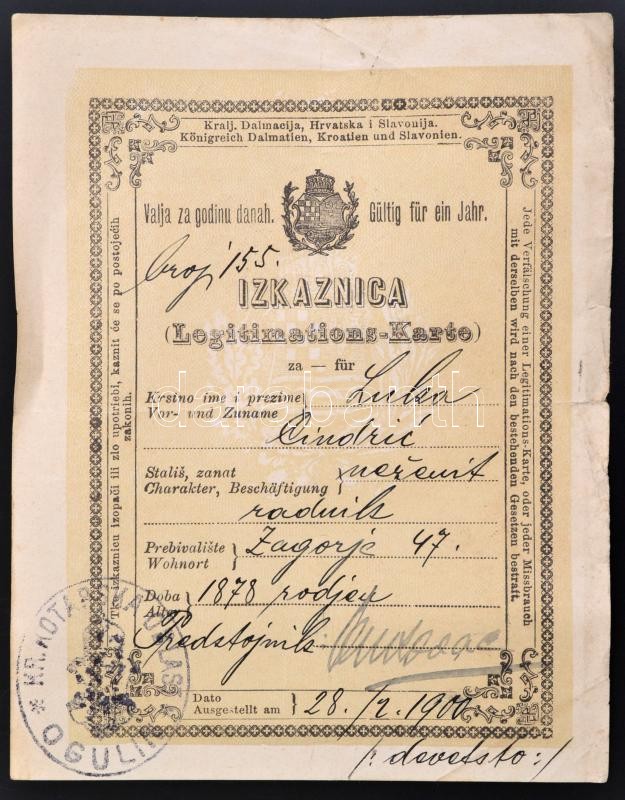 Kralj. Dalmacija, Hrvatska i Slavonija.
Königreich Dalmatien, Kroatien und Slavonien.
Valja za godinu danah. Gültig für ein Jahr.
broj 155.
IZKAZNICA
(Legitimations-Karte)
za — für
Krstno ime i prezime
Vor- und Zuname
Luka
Cindrić
Stališ, zanat
Charakter, Beschäftigung
neženit
radnik
Prebivalište
Wohnort
Zagorje 47.
Doba
Alter
1878 rodjen
Predstojnik
Dato
Ausgestellt am
28./2. 1900
/: devetsto :/
Tko izkaznicu izopači ili zlo upotriebi, kaznit će se po postojećih
zakonih.
Jede Verfälschung einer Legitimations-Karte, oder jeder Missbrauch
mit derselben wird nach den bestehenden Gesetzen bestraft.
* KR. KOTARSKA OBLAST
OGULIN
darabanth